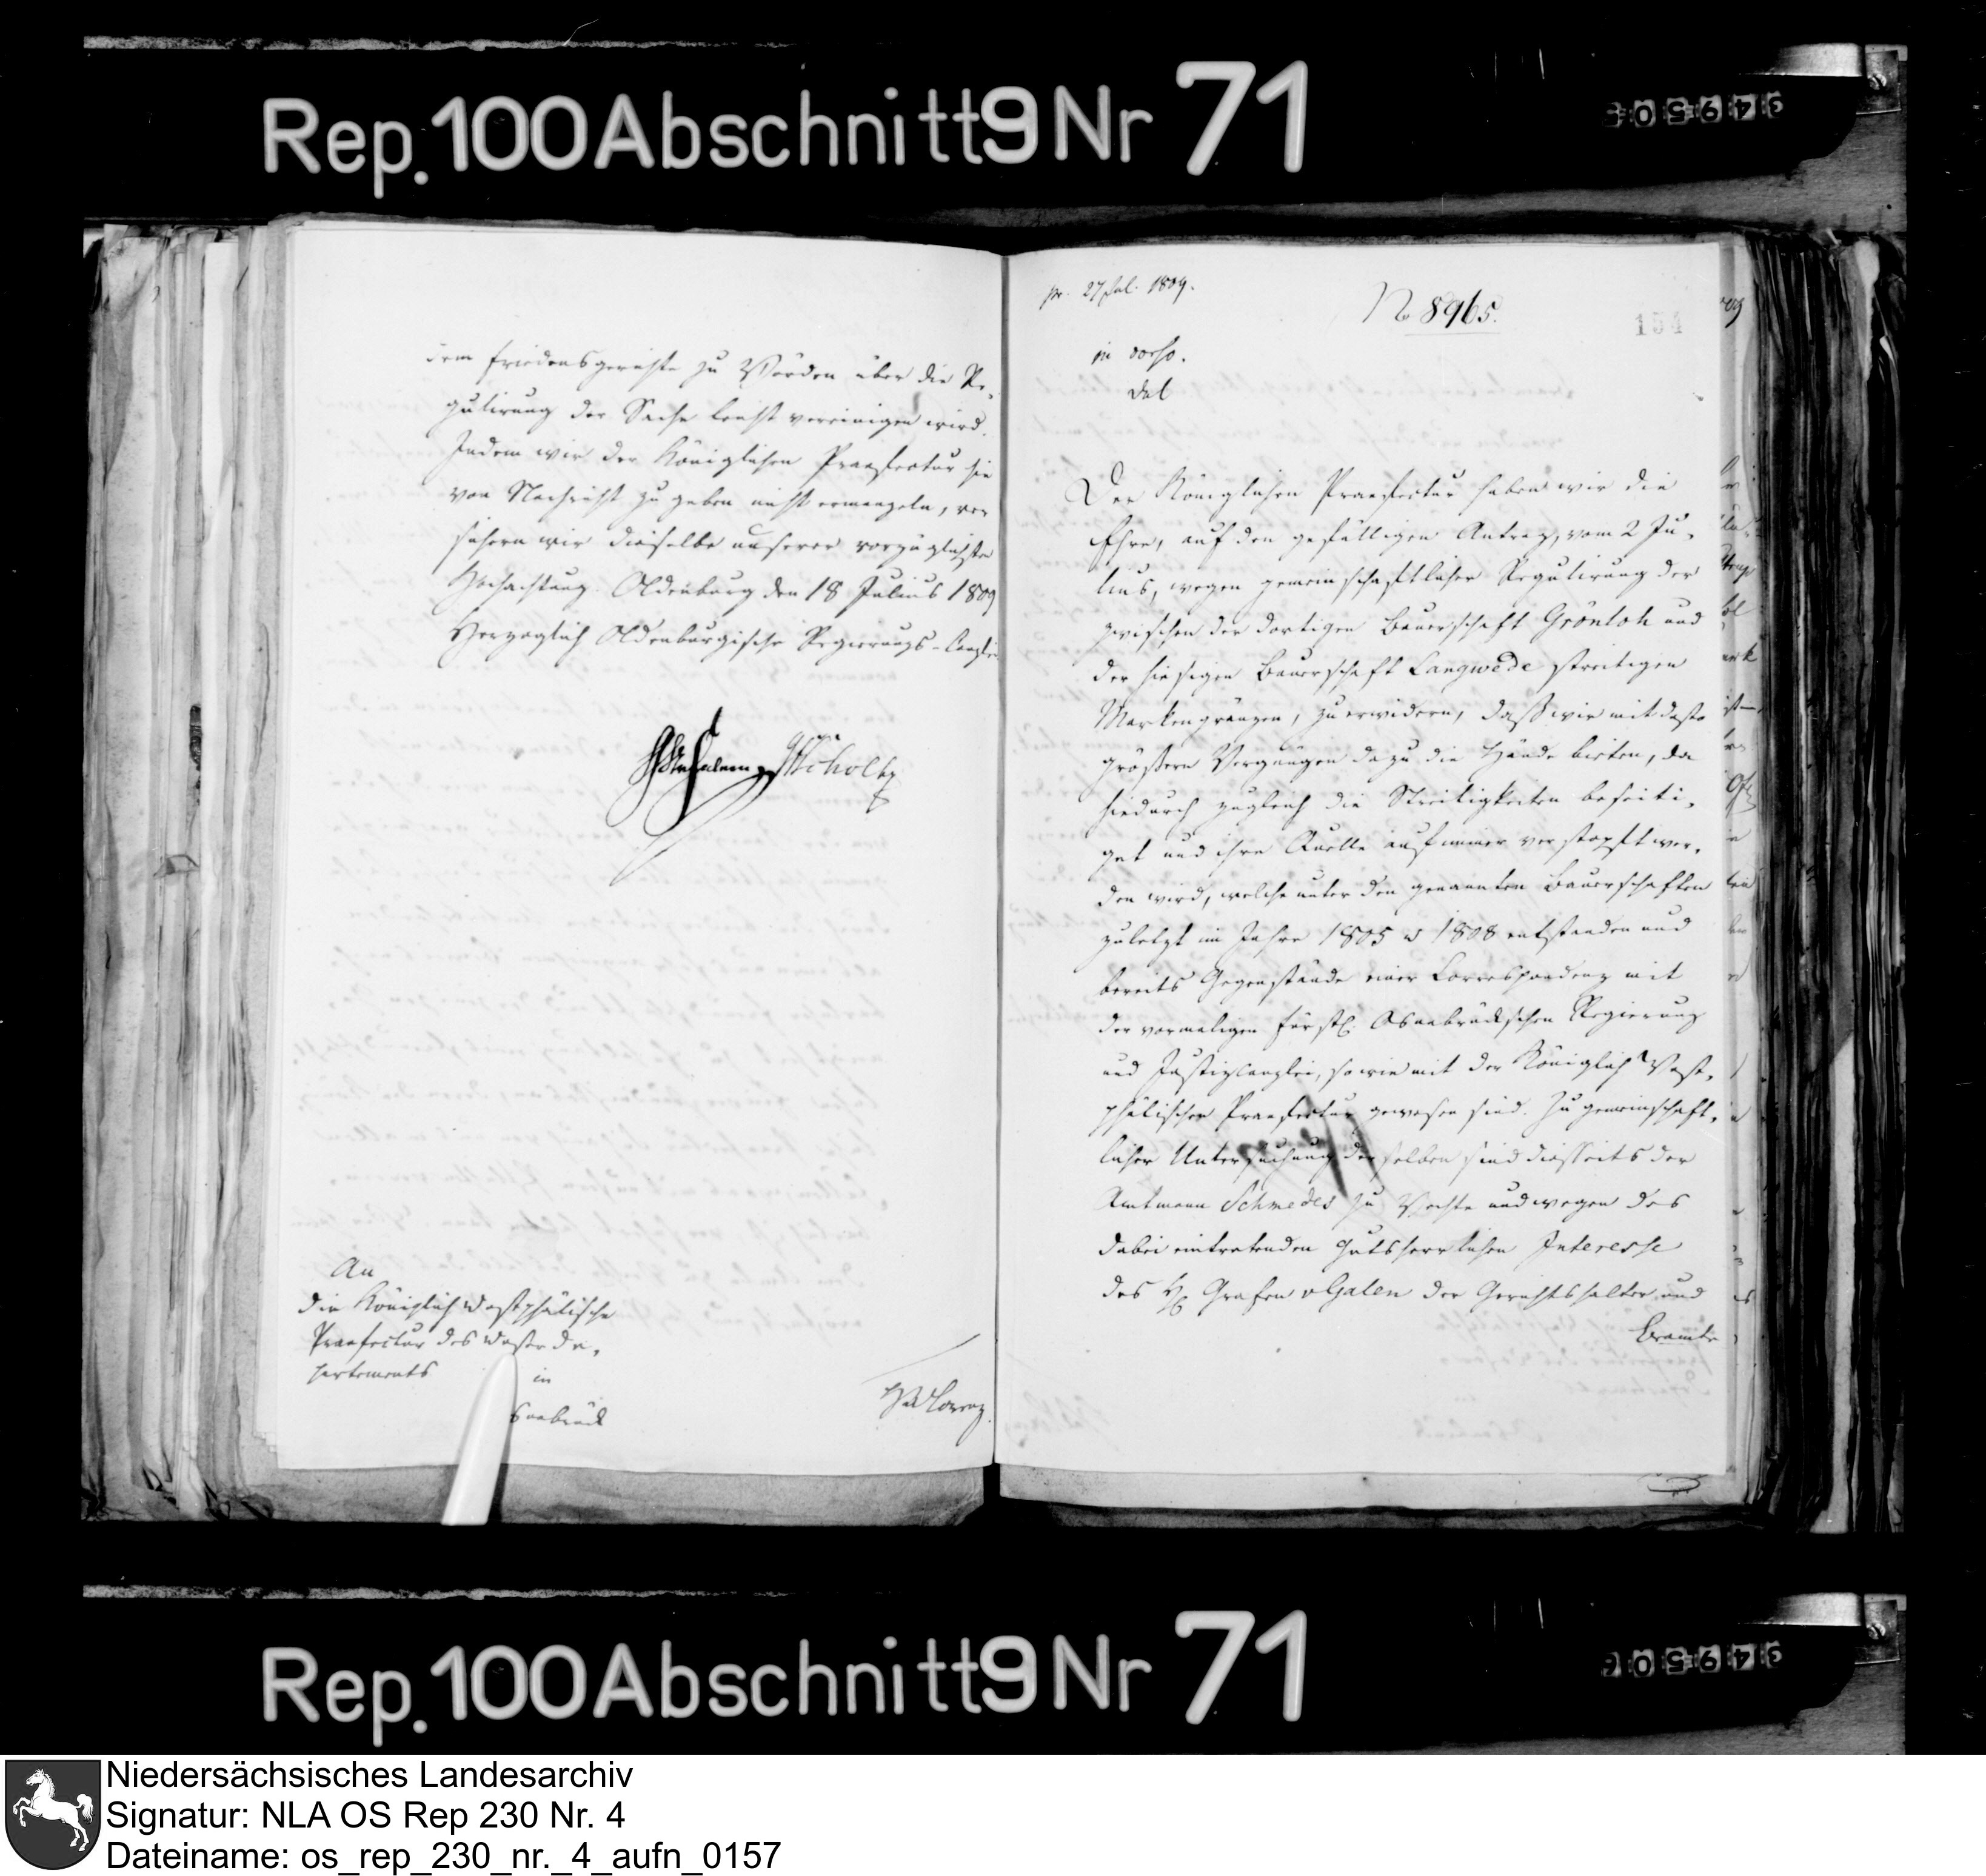 Rep. 100 Abschnitt 9 Nr 71
dem Friedensgerichte zu Vörden über die Re-
gulirung der Sache leicht vereinigen wird.
Indem wir der Königlichen Praefectur hie
von Nachricht zu geben nicht ermangeln, ver
sichern wir dieselbe unserer vorzüglichsten
Hochachtung. Oldenburg den 18 Julius 1809
Herzoglich Oldenburgische Regierungs-Canzlei
Scholtz
An
die Königlich Westphälische
Praefectur des Weser De-
partements
in
Osnabrück
pr. 27 Jul. 1809.
No 8965.
154
Der Königlichen Praefectur haben wir die
Ehre, auf den gefälligen Antrag, vom 2 Ju-
lius, wegen gemeinschaftlicher Regulirung der
zwischen der dortigen Bauerschaft Grönloh und
der hiesigen Bauerschaft Langwede streitigen
Markengränzen, zu erwidern, daß wir mit desto
größern Vergnügen dazu die Hände bieten, da
hiedurch zugleich die Streitigkeiten beseiti-
get und ihre Quelle auf immer verstopft wer-
den wird, welche unter den genannten Bauerschaften
zuletzt im Jahre 1805 u 1808 entstanden und
bereits Gegenstände einer Correspondenz mit
der vormaligen Fürstl. Osnabrückschen Regierung
und Justizcanzlei, so wie mit der Königlich West-
phälischen Praefectur gewesen sind. Zu gemeinschaft-
licher Untersuchung derselben sind diesseits der
Amtmann Schmedes zu Vechte und wegen des
dabei eintretenden gutsherrlichen Interesse
des H. Grafen v Galen der Gerichtshalter und
Beamte
Rep. 100 Abschnitt 9 Nr 71
Niedersächsisches Landesarchiv
Signatur: NLA OS Rep 230 Nr. 4
Dateiname: os_rep_230_nr._4_aufn_0157